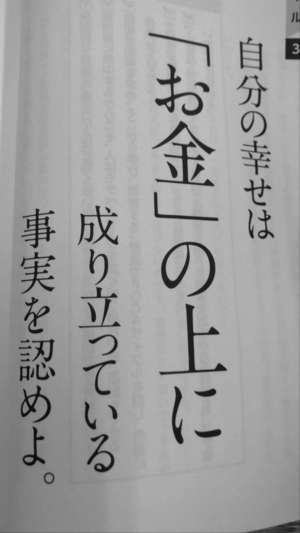 ル
3
自分の幸せは
「お金」の上に
成り立っている
事実を認めよ。